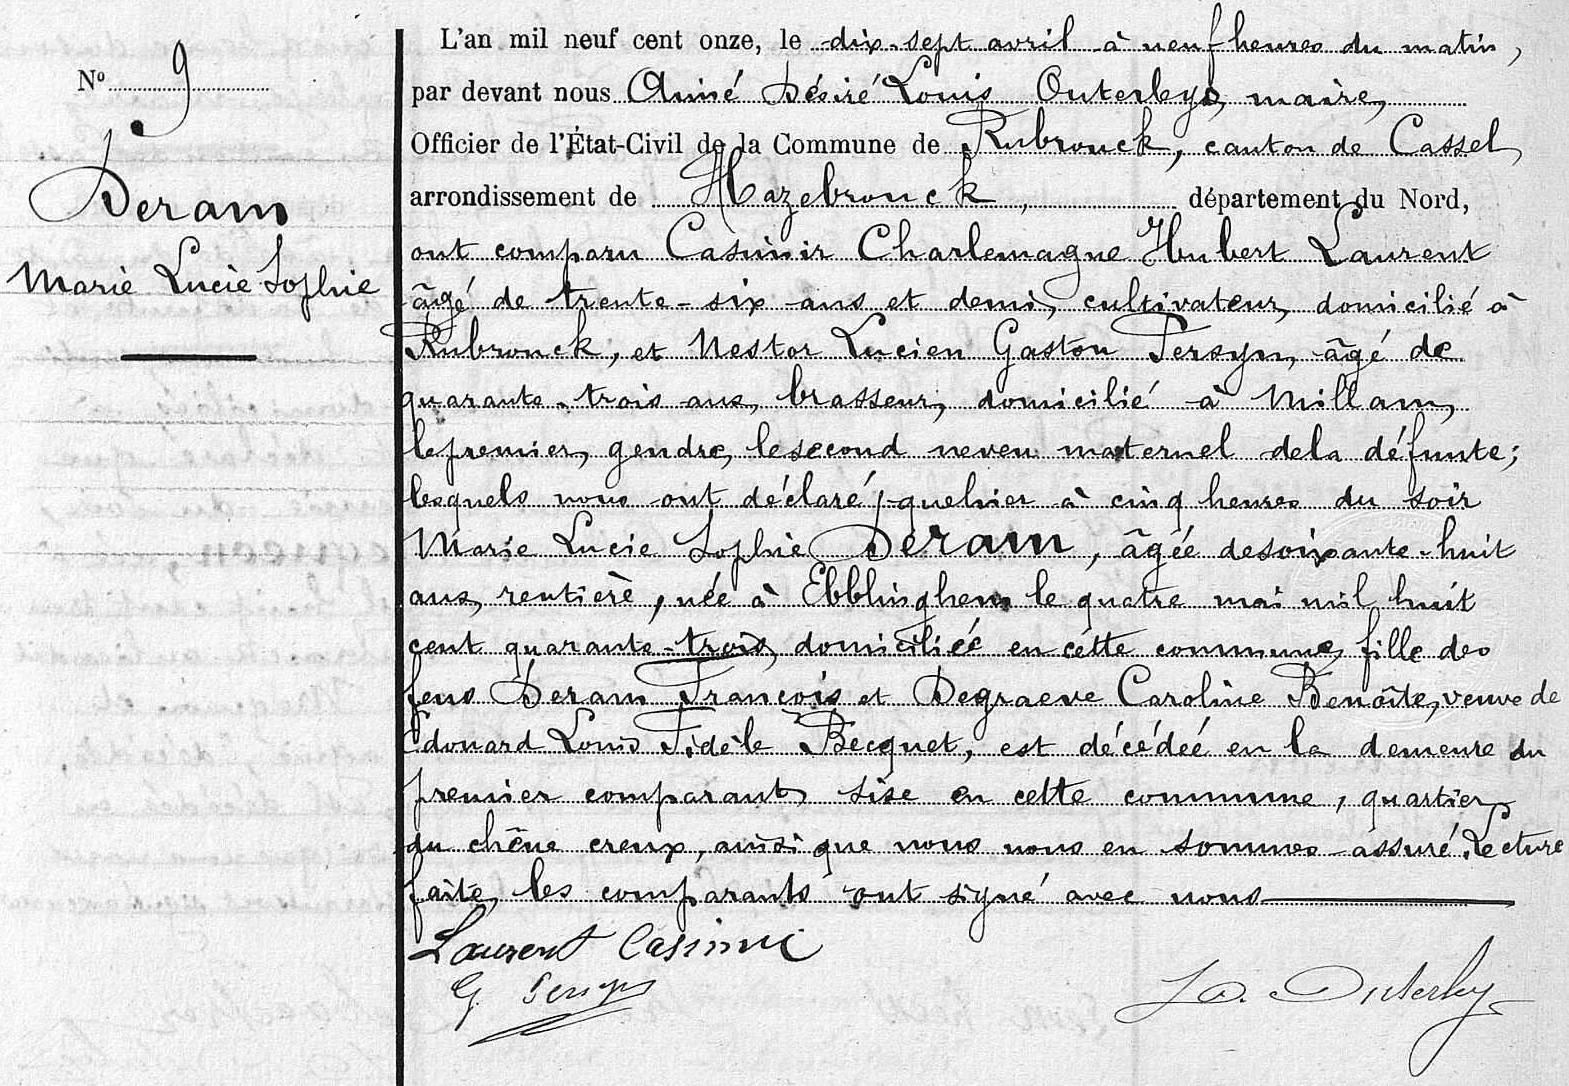 N° 9
Deram
Marie Lucie Sophie
L'an mil neuf cent onze, le dix-sept avril à neuf heures du matin,
par devant nous Aimé Désiré Louis Outerleys, maire,
Officier de l'État-Civil de la Commune de Rubrouck, canton de Cassel,
arrondissement de Hazebrouck, département du Nord,
ont comparu Casimir Charlemagne Hubert Laurent
âgé de trente-six ans et demi, cultivateur, domicilié à
Rubrouck, et Nestor Lucien Gaston Persyn, âgé de
quarante-trois ans, brasseur, domicilié à Millam,
le premier, gendre, le second neveu maternel de la défunte;
lesquels nous ont déclaré que hier à cinq heures du soir
Marie Lucie Sophie Deram, âgée de soixante-huit
ans, rentière, née à Ebblinghem le quatre mai mil huit
cent quarante-trois, domiciliée en cette commune, fille des
feus Deram François et Degraeve Caroline Benoîte, veuve de
Edouard Louis Fidèle Becquet, est décédée en la demeure du
premier comparant, sise en cette commune, quartier
du chêne creux, ainsi que nous nous en sommes assuré. Lecture
faite, les comparants ont signé avec nous
Laurent Casimir
G. Persyn
D. Outerleys